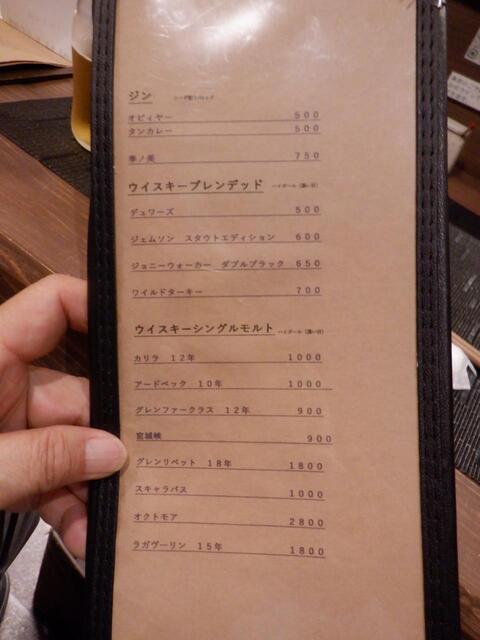 ジン
オピィヤー 500
タンカレー 500
季ノ美 750
ウイスキーブレンデッド ハイボール（濃い目）
デュワーズ 500
ジェムソン スタウトエディション 600
ジョニーウォーカー ダブルブラック 650
ワイルドターキー 700
ウイスキーシングルモルト ハイボール（濃い目）
カリラ 12年 1000
アードベック 10年 1000
グレンファークラス 12年 900
宮城峡 900
グレンリベット 18年 1800
スキャラバス 1000
オクトモア 2800
ラガヴーリン 15年 1800